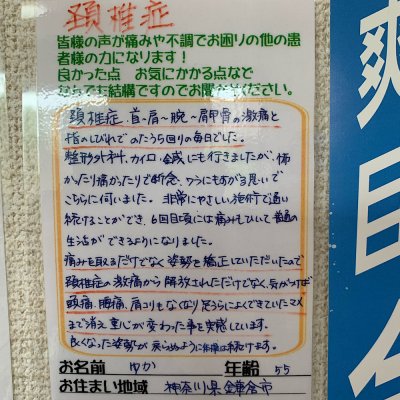 頚椎症
皆様の声が痛みや不調でお困りの他の患
者様の力になります！
良かった点　お気にかかる点など
なんでも結構ですのでお聞かせください。
頚椎症、首〜肩〜腕〜肩甲骨の激痛と
指のしびれでのたうち回りの毎日でした。
整形外科、カイロ、全滅にも行きましたが、怖
かったり痛かったりで断念、ワラにもすがる思いで
こちらに伺いました。非常にやさしい施術で通い
続けることができ、6回目頃には痛みもひいて普通の
生活ができるようになりました。
痛みを取るだけでなく姿勢も矯正していただいたので
頚椎症の激痛から解放されただけでなく、気がつけば
頭痛、腰痛、肩コリもなくなり足うらによくできていたマメ
まで消え重心が変わった事を実感しています。
良くなった姿勢が戻らぬように体操は続けます。
お名前　ゆか　年齢　55
お住まい地域　神奈川県鎌倉市
爽
目